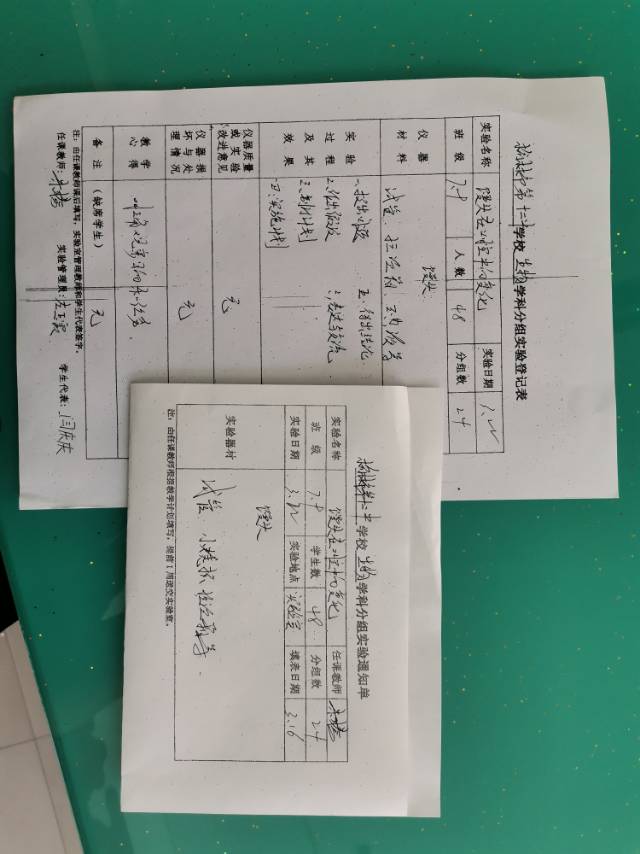 第十二中学校生物学科分组实验登记表
实验名称 馒头在口腔中的变化 实验日期
班级 7.9 人数 48 分组数 24
仪器材料 馒头
试管、
实验过程及其效果
一、提出问题 五、得出结论
二、作出假设
三、制订计划
四、实施计划
仪器质量或实验改进意见 无
仪器损坏与处理情况 无
教学心得
备注(缺席学生) 无
注:由任课教师课后填写,实验室管理教师和学生代表签字。
任课教师: 实验管理员: 学生代表:
第十二中学校生物学科分组实验通知单
实验名称 馒头在口腔中的变化 任课教师
班级 7.9 学生数 48 分组数 24
实验日期 3.22 实验地点 实验室 填表日期 3.16
实验器材 馒头
试管、小烧杯、
注:由任课教师根据教学计划填写,提前1周送交实验室。